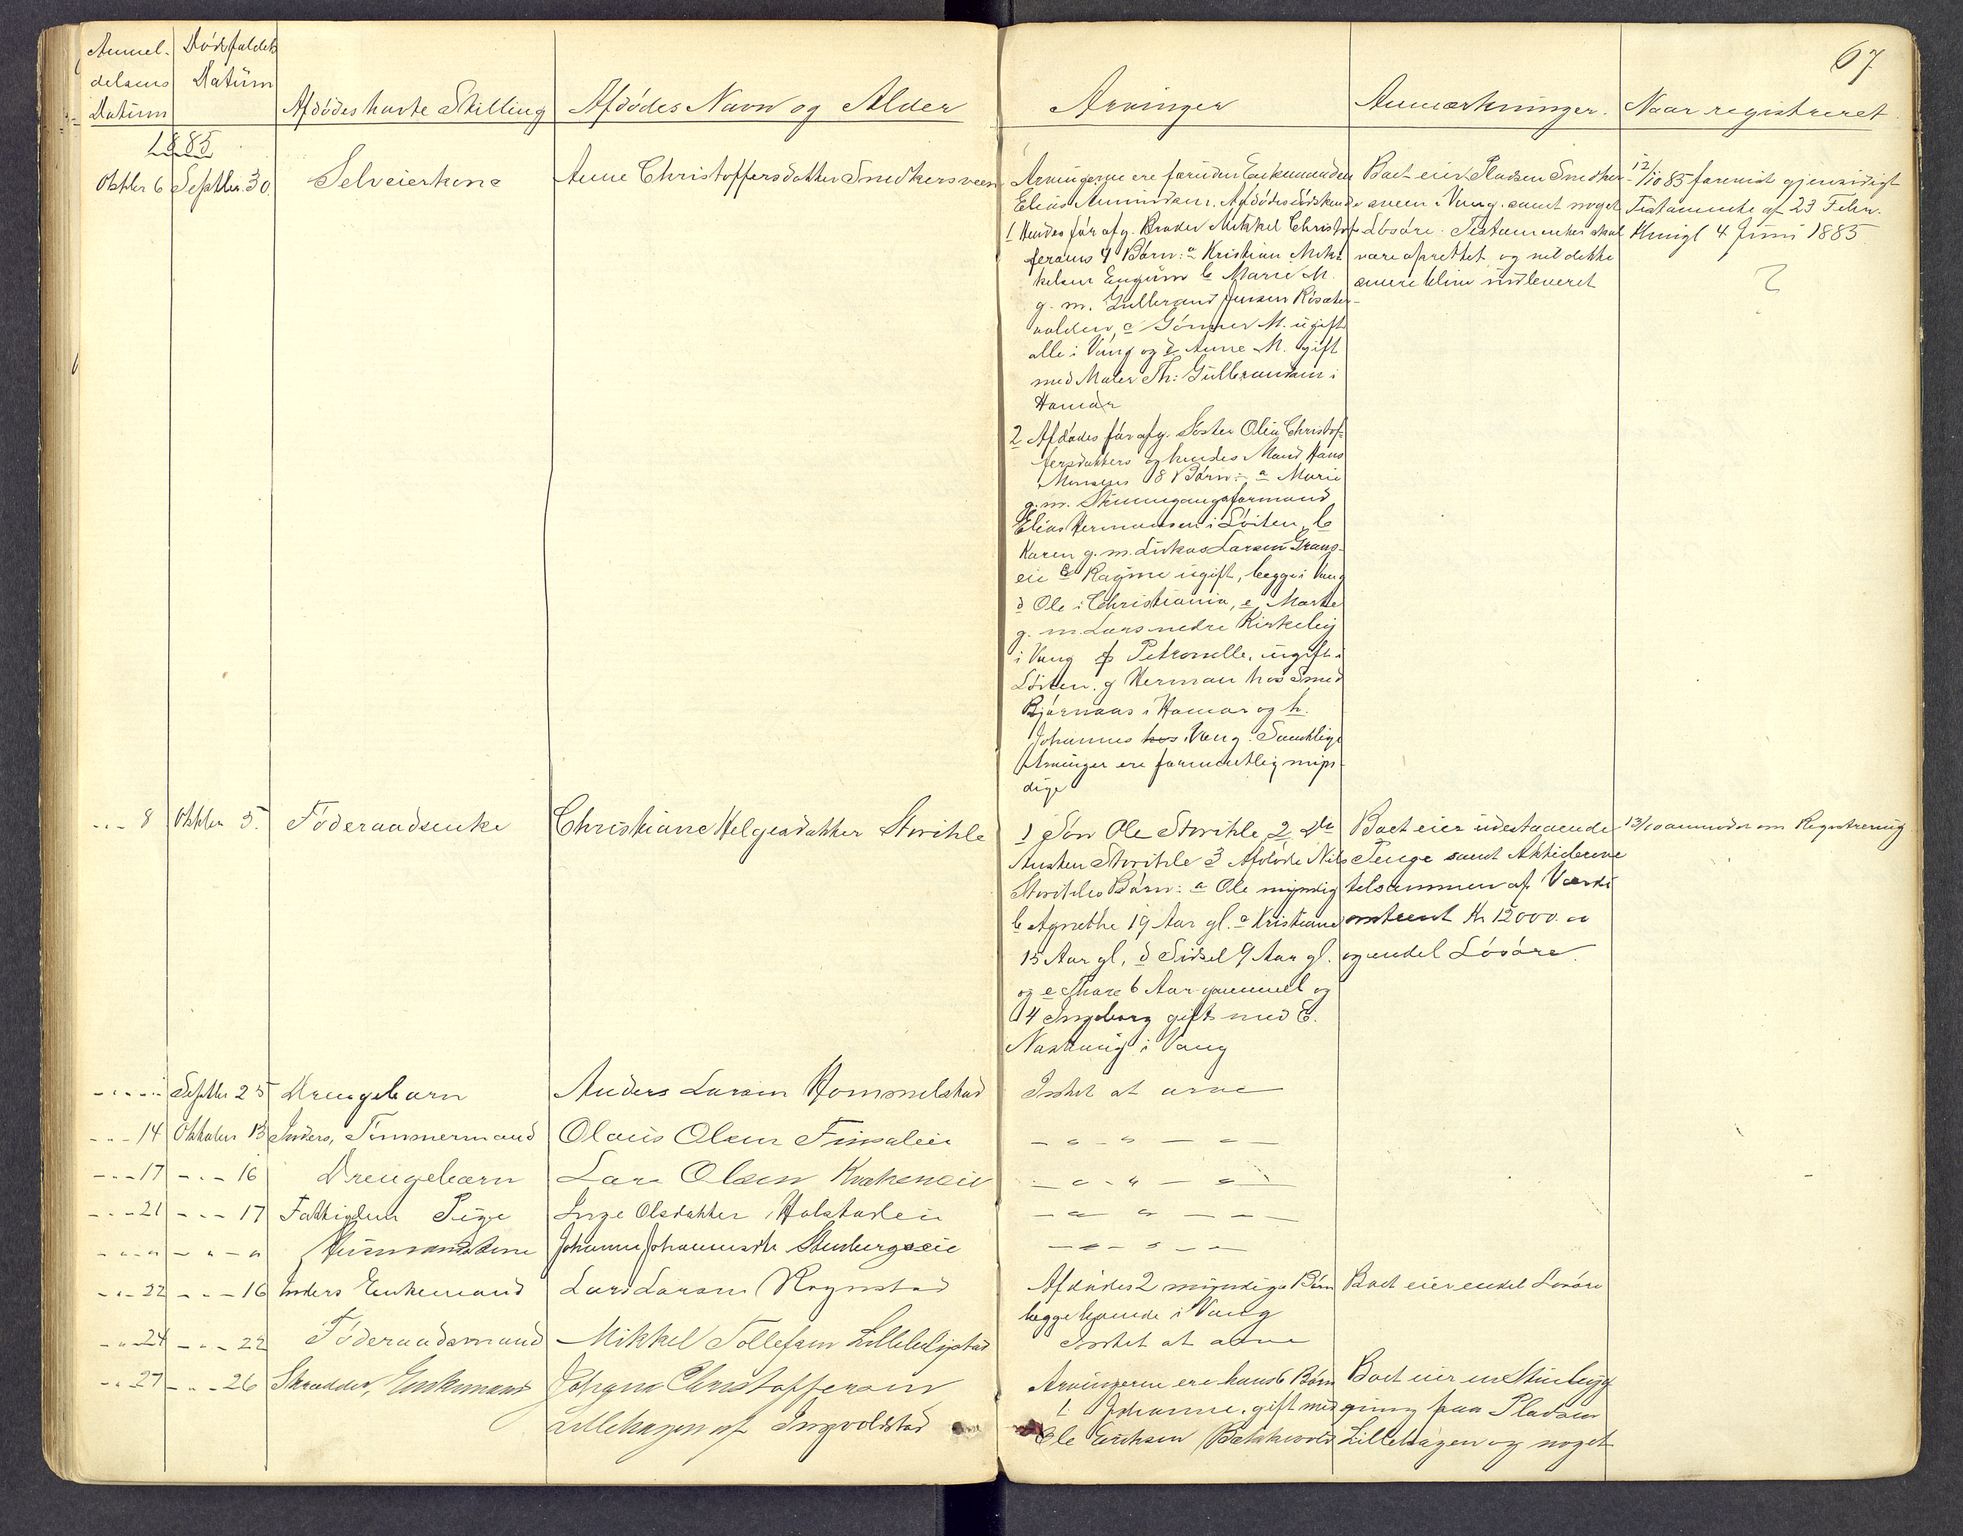 67
Anmel-
delsens
Datum
Dødsfaldets
Datum
Afdødes havte Stilling
Afdødes Navn og Alder
Arvinger
Anmærkninger.
Naar registreret
1885
Oktbr 6
Septbr. 30.
Selveierkone
Anne Christoffersdatter Snedkersveen
Arvingerne ere foruden Enkemanden
Elias Amundsen, Afdødes Sødskende
1 Hendes før afg. Broder Mikkel Christof-
fersens 4 Børn: a Kristian Mik-
kelsen Engum b Marie M.
g. m. Gulbrand Jensen Rosæter-
volden, c Gunner M. ugift
alle i Vang og d Anne M. gift
med Maler Th: Gulbrandsen i
Hamar
2 Afdødes før afg. Søster Olea Christof-
fersdatters og hendes Mand Hans
8 Børn: a Marie
g. m. Stenngangsformand
Elias Hermansen i Løiten, b
Karen g. m. Lukas Larsen Grans-
eie c Ragine ugift, begge i Vang
d Ole i Christiania, e Marthe
g. m. Lars nedre Kirkeby
i Vang f Petronelle, ugift i
Løiten, g Herman hos Smed
Bjørnaas i Hamar og h.
Johannes hos i Vang. Samtlige
Arvinger ere formentlig myn-
dige
Boet eier Pladsen Snedker-
sveen i Vang samt noget
Løsøre. Testamente skal
være oprettet og vil dette
senere blive indleveret
12/10 85 forevist gjensidigt
Testamente af 23 Febr.
Kongl 4 Juni 1885.
?
- - - 8
Oktbr 5.
Føderaadsenke
Christiane Helgesdatter Storihle
1 Søn Ole Storihle 2 Do
Austen Storihle 3 Afdøde Nils
Storihles Børn: a Ole myndig
b Agnethe 19 Aar gl. c Kristiane
15 Aar gl, d Sidsel 9 Aar gl.
og e Thare 6 Aar gammel og
4 Ingeborg gift med E.
Naskaug i Vang
Boet eier udestaaende
Penge samt Aktiderne
tilsammen af Værdi
omtrent Kr 12000.00
og endel Løsøre.
13/10 anmodet om Registrering
- " - "
Septbr 25
Drengebarn
Anders Larsen Hommelstad
Intet at arve
- - - 14
Oktober 13
Inders, Tømmermand
Olaus Olsen Finsaleie
— " - " — " —
- " - 17
- " - 16
Drengebarn
Lars Olsen Krakeneie
— " - " — " —
- " - 21
- " - 17
Fattiglem Pige
Inge Olsdatter, Holstadeie
— " — " — —
- " - "
- " - "
Husmandskone
Johanne Johannesdtr Stenbergseie
— " - " — —
- " - 22
- " - 16
Inders Enkemand
Lars Larsen Rognstad
Afdødes 2 myndige Børn
begge boende i Vang
Boet eier endel Løsøre
- " - 24
- " - 22
Føderaadsmand
Mikkel Tollefsen Lillelulystad
Intet at arve
- " - 27
- " - 26
Skrædder, Enkemand
Johan Christoffersen
Lillehagen af Ingvoldstad
Arvingerne ere hans 6 Børn
1. Johanne, gift med
Ole Eriksen Bakkevold
Boet eier en Stuebyg-
ning paa Pladsen
Lillehagen og noget